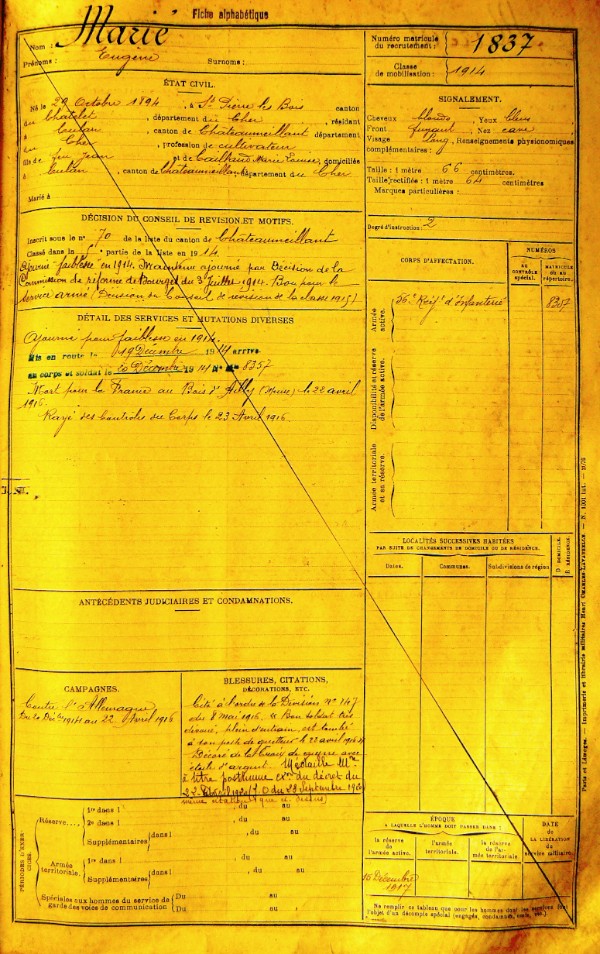 Fiche alphabétique
Nom : Marié
Prénoms : Eugène Surnoms :
ÉTAT CIVIL.
Né le 29 Octobre 1894, à St Pierre les Bois canton
du Chatelet, département du Cher, résidant
à Culan, canton de Châteaumeillant département
du Cher, profession de cultivateur
fils de feu Jean et de Marie domiciliés
à Culan, canton de Châteaumeillant département du Cher
Marié à
DÉCISION DU CONSEIL DE REVISION ET MOTIFS.
Inscrit sous le n° 70 de la liste du canton de Châteaumeillant
Classé dans la partie de la liste en 1914.
Ajourné faiblesse en 1914. Maintenu ajourné par Décision de la
Commission de réforme de Bourges du 3 Juillet 1914. Bon pour le
service armé (Décision du Conseil de révision de la classe 1915)
DÉTAIL DES SERVICES ET MUTATIONS DIVERSES
Ajourné pour faiblesse en 1914.
Mis en route le 19 Décembre 1914 arrivé
au corps et soldat le 20 Décembre 1914 N° Mle 8357
Mort pour la France au Bois d'Ailly (Meuse) le 22 avril
1916.
Rayé des Contrôles du Corps le 23 Avril 1916.
ANTÉCÉDENTS JUDICIAIRES ET CONDAMNATIONS.
CAMPAGNES.
Contre l'Allemagne
du 20 Déc. 1914 au 22 Avril 1916
BLESSURES, CITATIONS,
DÉCORATIONS, ETC.
Cité à l'ordre de la Division N° 147
du 8 mai 1916. Bon soldat très
dévoué, plein d'entrain, est tombé
à son poste de guetteur le 22 avril 1916
Décoré de la Croix de guerre avec
étoile d'argent. Médaille Mre
à titre posthume du décret du
1920 (J.O du 23 Septembre 1920
même citation que ci dessus)
PÉRIODES D'EXERCICES
Réserve...
1re dans l , du au
2e dans l , du au
Supplémentaires dans l , du au
Armée territoriale.
1re dans l , du au
Supplémentaires dans l , du au
Spéciales aux hommes du service de garde des voies de communication
Du au
Du au
Numéro matricule du recrutement : 1837
Classe de mobilisation : 1914
SIGNALEMENT.
Cheveux blonds, Yeux bleus
Front fuyant, Nez cave
Visage long, Renseignements physionomiques
complémentaires :
Taille : 1 mètre 66 centimètres.
Taille rectifiée : 1 mètre 64 centimètres
Marques particulières :
Degré d'instruction : 2
CORPS D'AFFECTATION.
NUMÉROS
AU CONTRÔLE spécial.
MATRICULE OU AU répertoire.
Armée active.
Régt d'Infanterie 8357
Disponibilité et réserve de l'armée active.
Armée territoriale et sa réserve.
LOCALITÉS SUCCESSIVES HABITÉES
PAR SUITE DE CHANGEMENTS DE DOMICILE OU DE RÉSIDENCE.
Dates. Communes. Subdivisions de région D DOMICILE. R RÉSIDENCE.
ÉPOQUE
A LAQUELLE L'HOMME DOIT PASSER DANS :
la réserve de l'armée active.
l'armée territoriale.
la réserve de l'armée territoriale
DATE
DE LA LIBÉRATION DU service militaire.
15 Décembre
1917
Paris et Limoges. — Imprimerie et librairie militaires Henri CHARLES-LAVAUZELLE